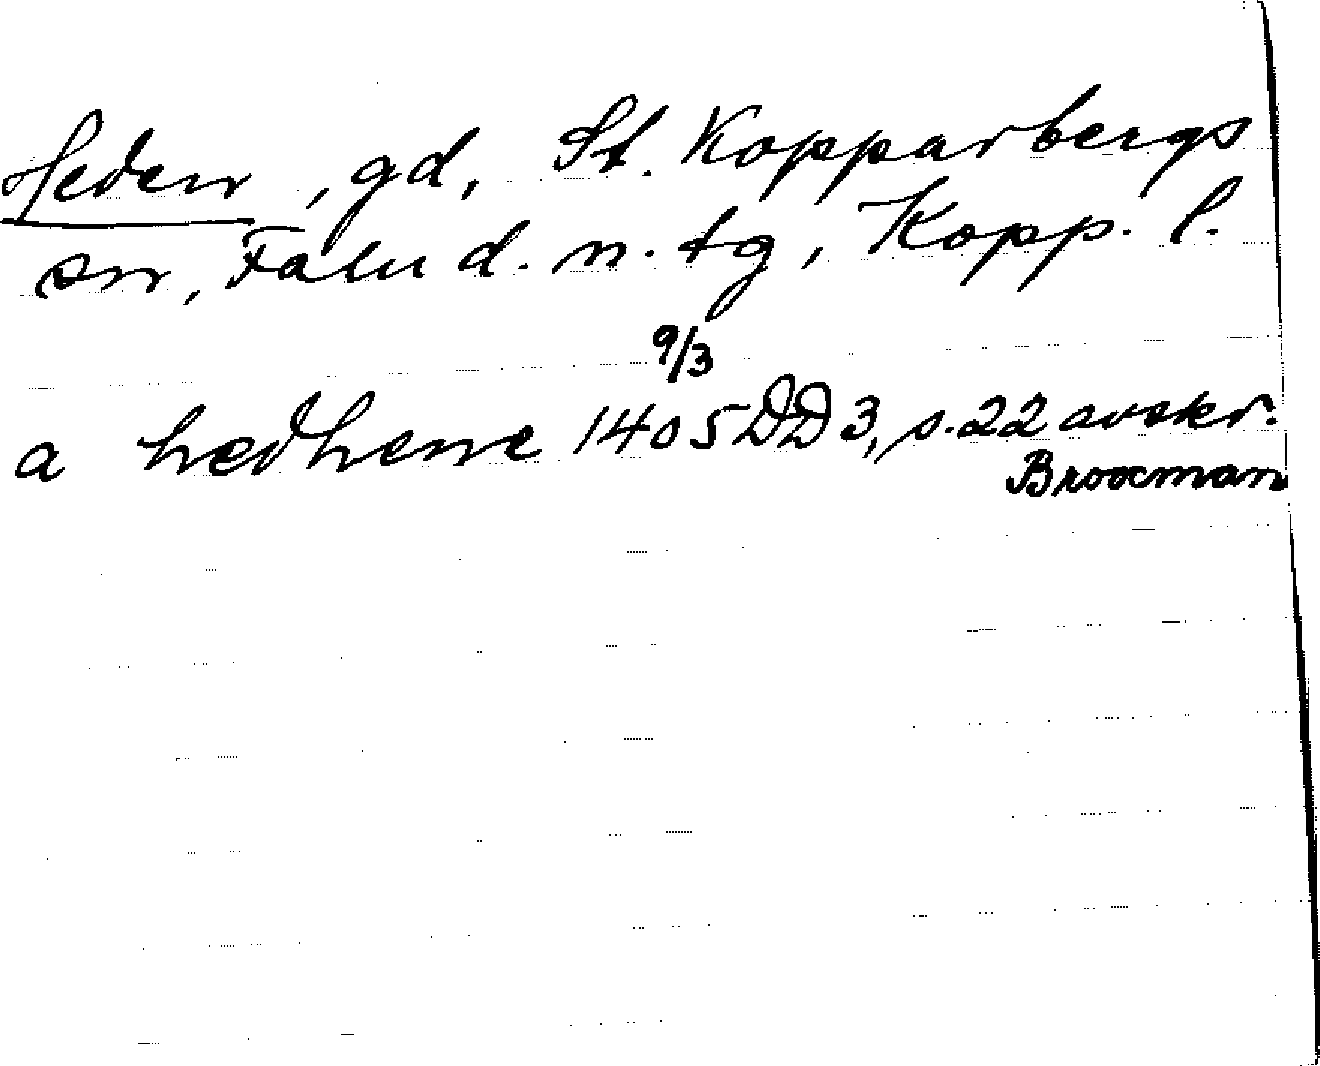 Heden, gd, St. Kopparbergs
sn, Falu d. n. tg, Kopp. l.
9/3
a hedhenne 1405 DD 3, s. 22 avskr.
Brooxman